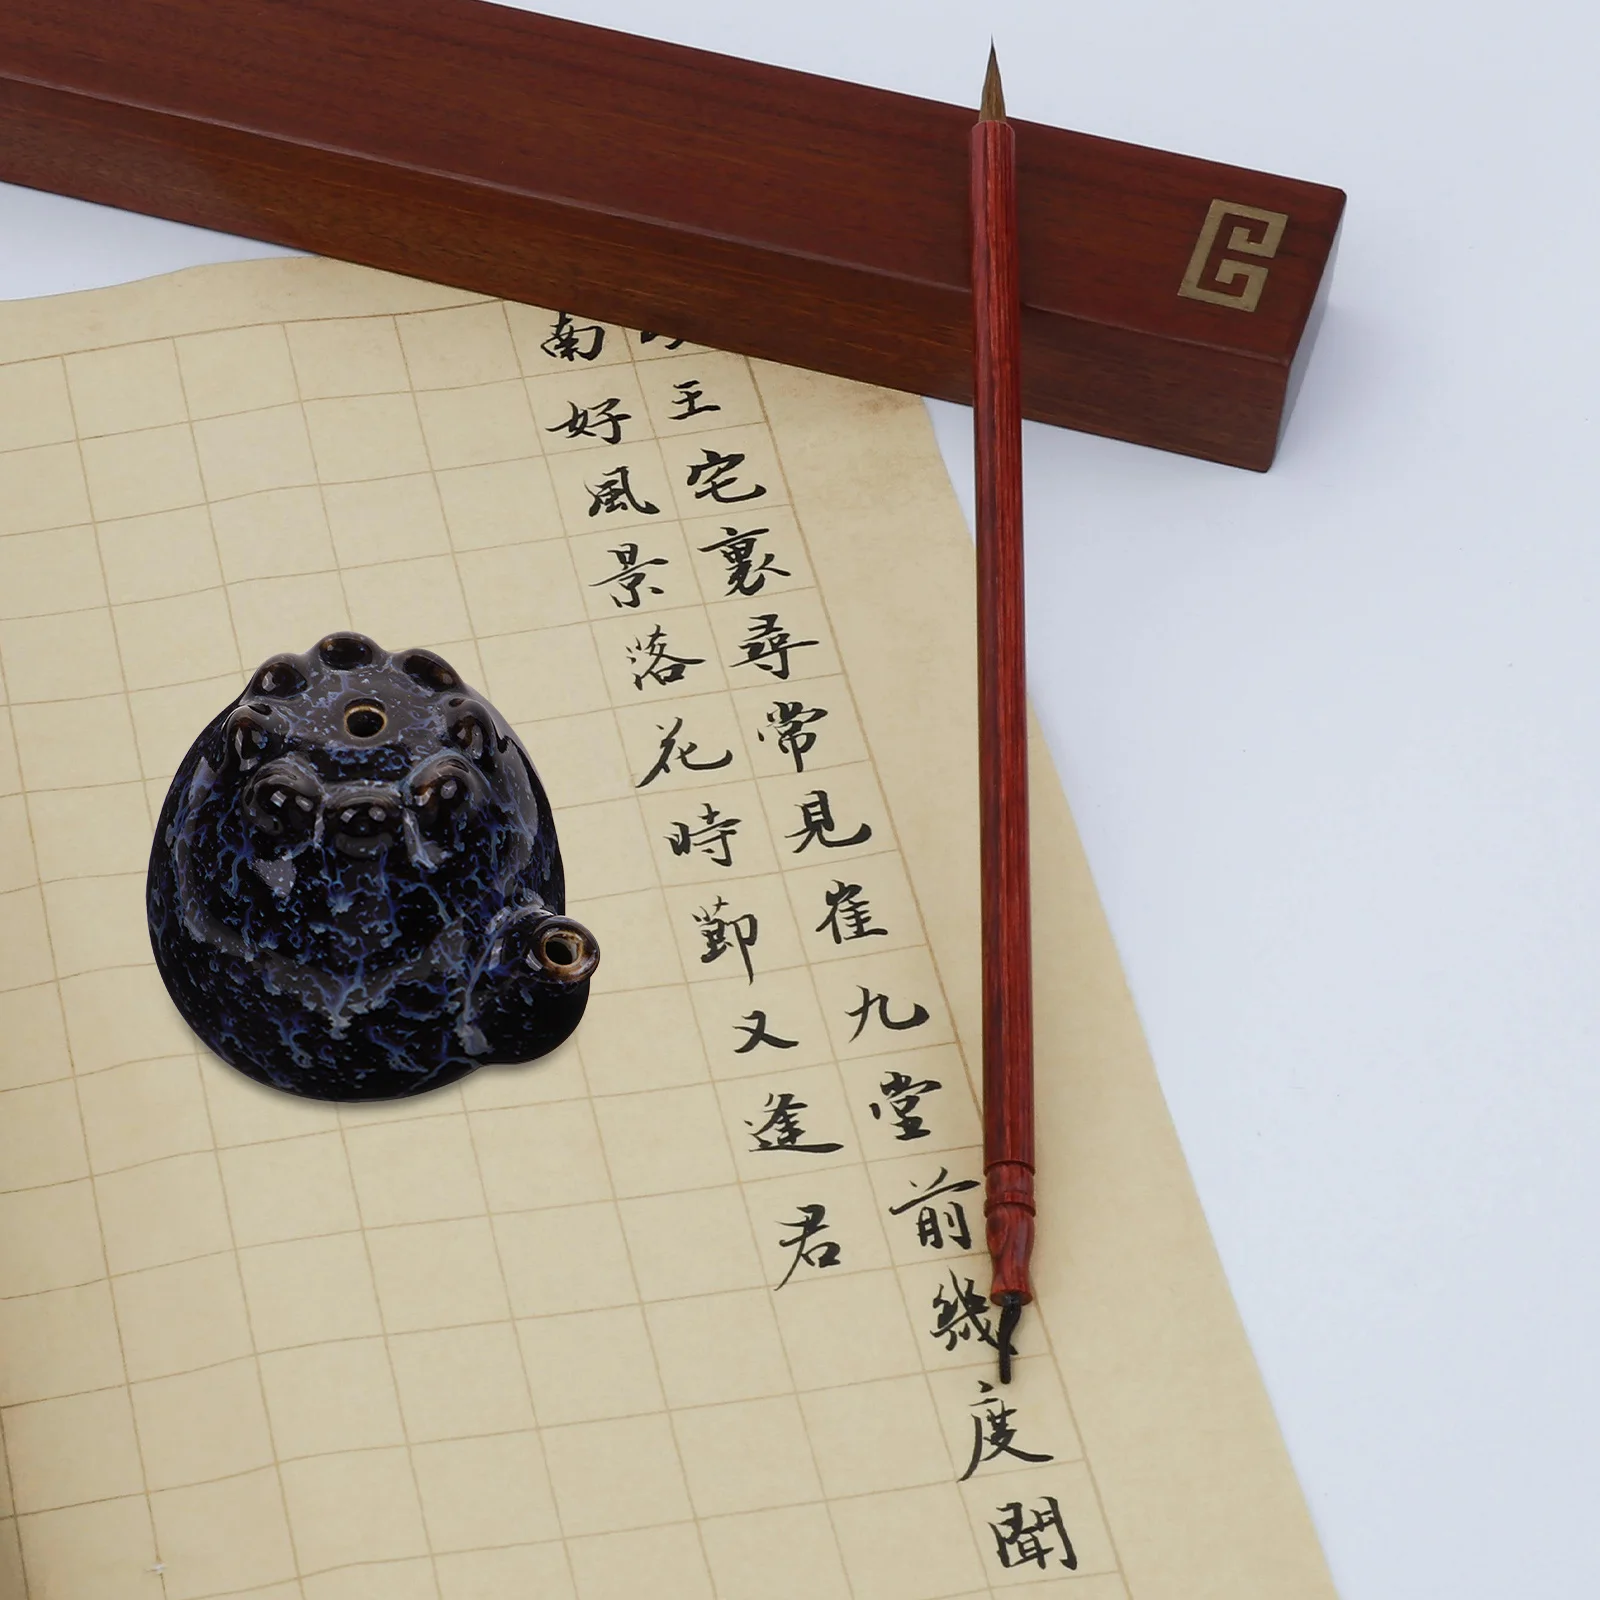 王宅裏尋常見崔九堂前幾度聞
南好風景落花時節又逢君